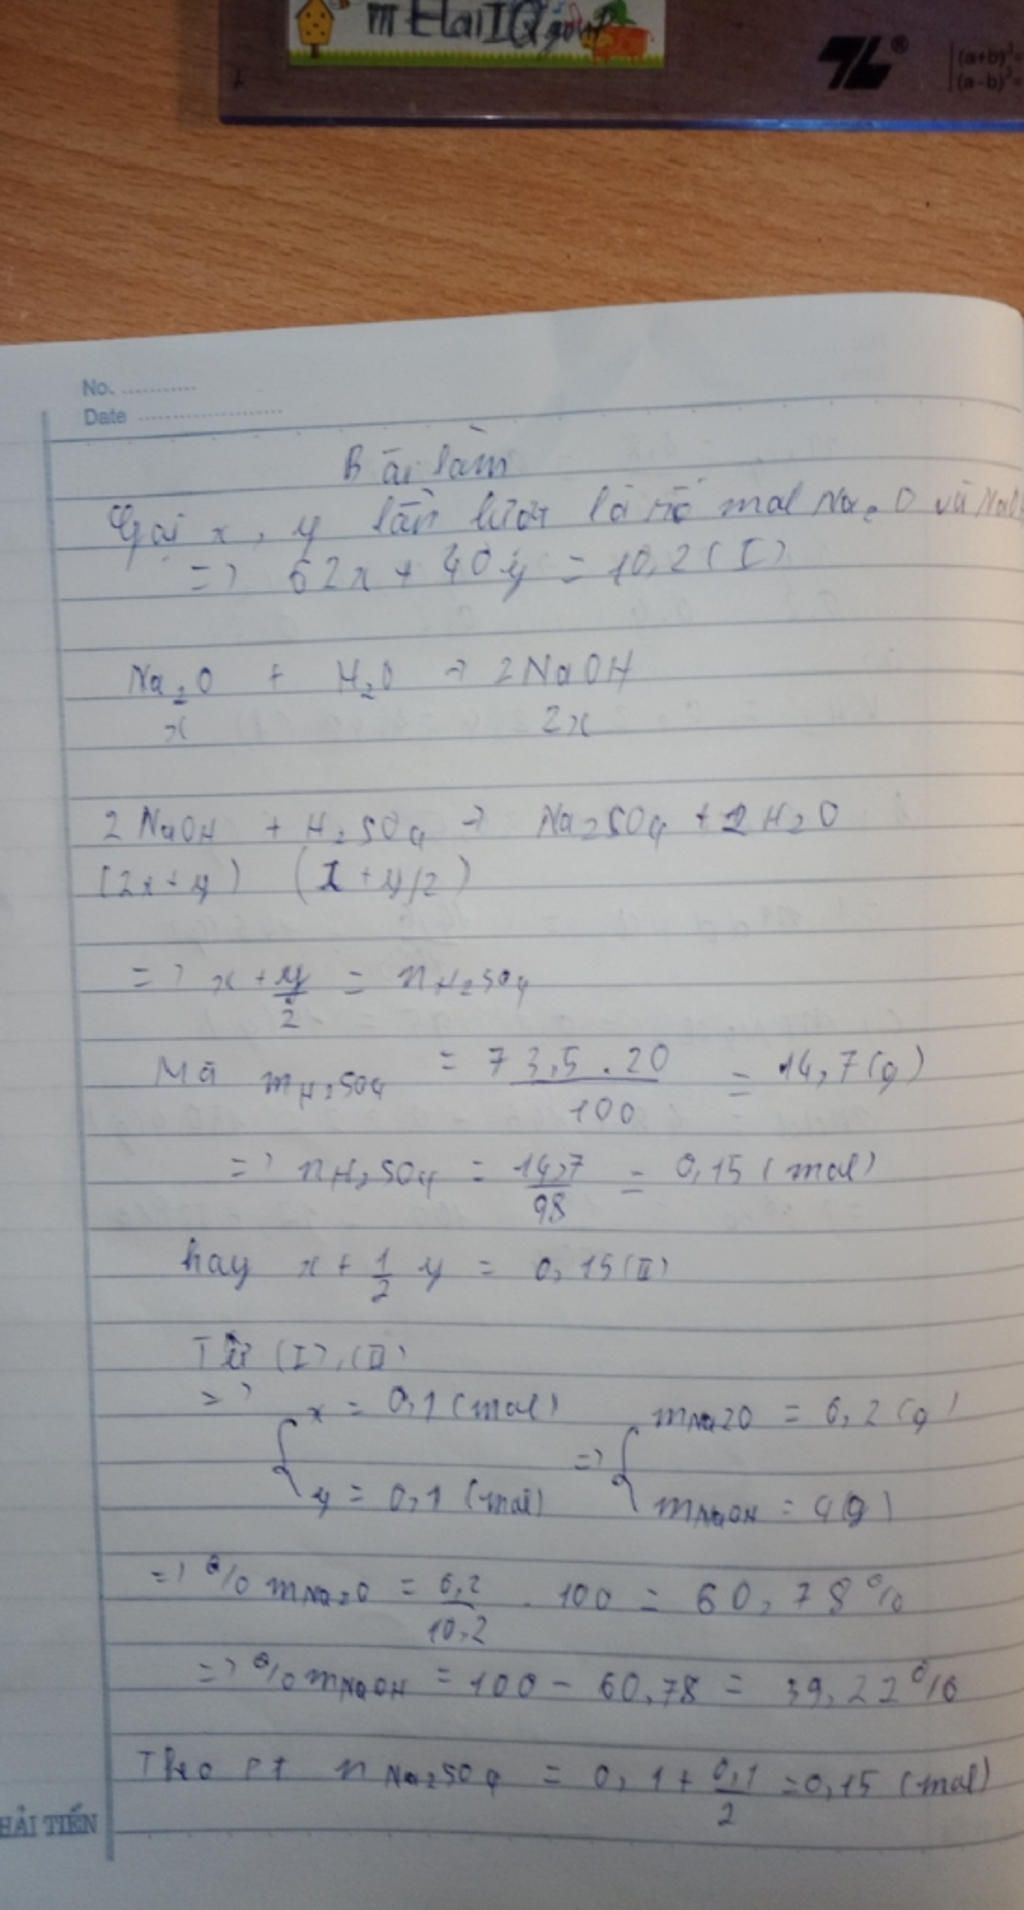 m ElaiIQ
TL®
(a+b)²=
(a-b)²=
No. ...........
Date ......................
Bài làm
Gọi x, y lần lượt là số mol Na₂O và
=> 62x + 40y = 10,2 (I)
Na₂O + H₂O → 2NaOH
x 2x
2NaOH + H₂SO₄ → Na₂SO₄ + 2H₂O
(2x+y) (x+y/2)
=> x + y/2 = nH₂SO₄
Mà mH₂SO₄ = 73,5.20/100 = 14,7(g)
=> nH₂SO₄ = 14,7/98 = 0,15 (mol)
hay x + 1/2 y = 0,15 (II)
Từ (I), (II)
=> { x = 0,1 (mol) => { mNa2O = 6,2 (g)
y = 0,1 (mol) mNaOH = 4(g)
=> %mNa₂O = 6,2/10,2 . 100 = 60,78%
=> %mNaOH = 100 - 60,78 = 39,22%
Theo pt nNa₂SO₄ = 0,1 + 0,1/2 = 0,15 (mol)
HẢI TIẾN